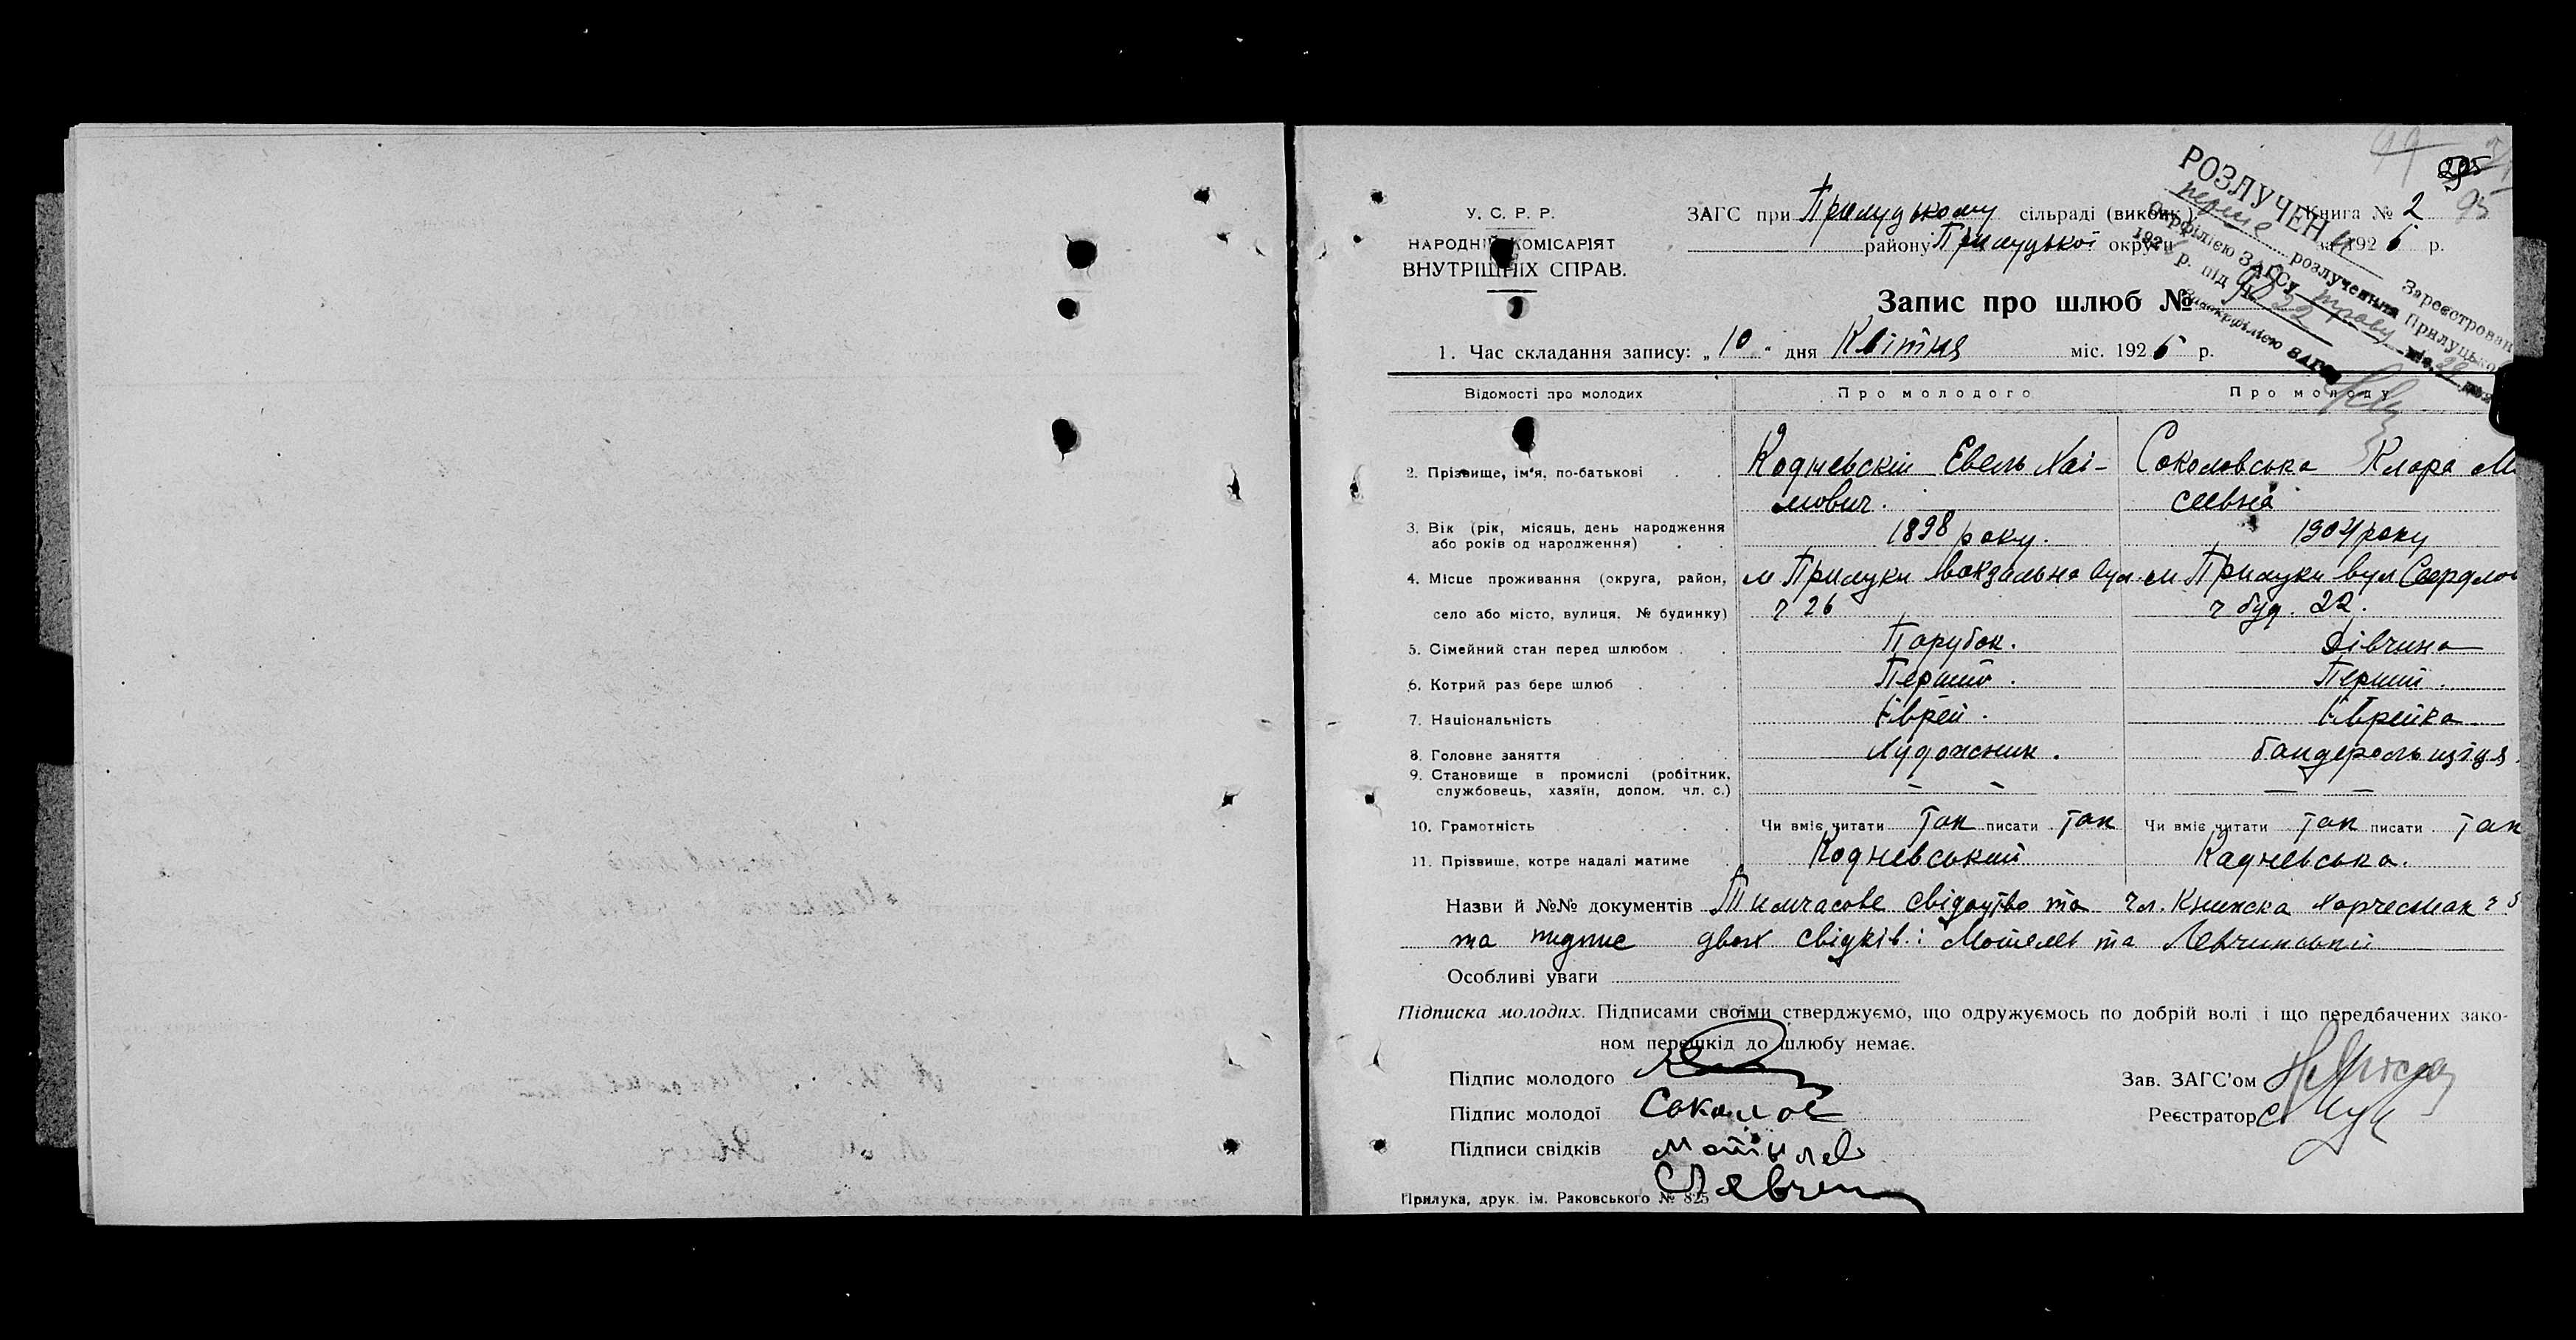 РОЗЛУЧЕН
перше розлучення Зареєстрован
Окрфілією ЗАГСу Прилуцько
192 р. під №
Завокрфілією ЗАГС
295
95
У. С. Р. Р.
НАРОДНІЙ КОМІСАРІЯТ
ВНУТРІШНІХ СПРАВ.
ЗАГС при Прилуцькому сільраді (викойк.) Книга № 2
району Прилуцької округи за 1926 р.
Запис про шлюб №
1. Час складання запису: „10“ дня Квітня міс. 1926 р.
Відомості про молодих Про молодого Про молоду
2. Прізвище, ім'я, по-батькові Коднєвскій Евель Хаі- Соколовська Клара М
мович. сеевна
3. Вік (рік, місяць, день народження
або років од народження) 1898 року. 1904 року
4. Місце проживання (округа, район, м Прилуки Вокзальна вул. м Прилуки вул Свердлов
село або місто, вулиця, № будинку) ч 26 ч буд. 22.
5. Сімейний стан перед шлюбом Парубок. Дівчина
6. Котрий раз бере шлюб Перший. Перший.
7. Національність Єврей. Єврейка
8. Головне заняття Художник. бандерольщіця.
9. Становище в промислі (робітник,
службовець, хазяїн, допом. чл. с.) — — — —
10. Грамотність Чи вміє читати Так писати Так Чи вміє читати Так писати Так
11. Прізвище, котре надалі матиме Коднєвський Кадневська.
Назви й №№ документів Тимчасове свідоцтво та чл. Книжка Харчесмак ч 5
та підпис двох свідків: Мотелев та Левчинський
Особливі уваги
Підписка молодих. Підписами своїми стверджуємо, що одружуємось по добрій волі і що передбачених зако-
ном перешкід до шлюбу немає.
Підпис молодого Зав. ЗАГС'ом
Підпис молодої Соколов Реєстратор
Підписи свідків Мотилев
С Левчин
Прилука, друк. ім. Раковського № 825